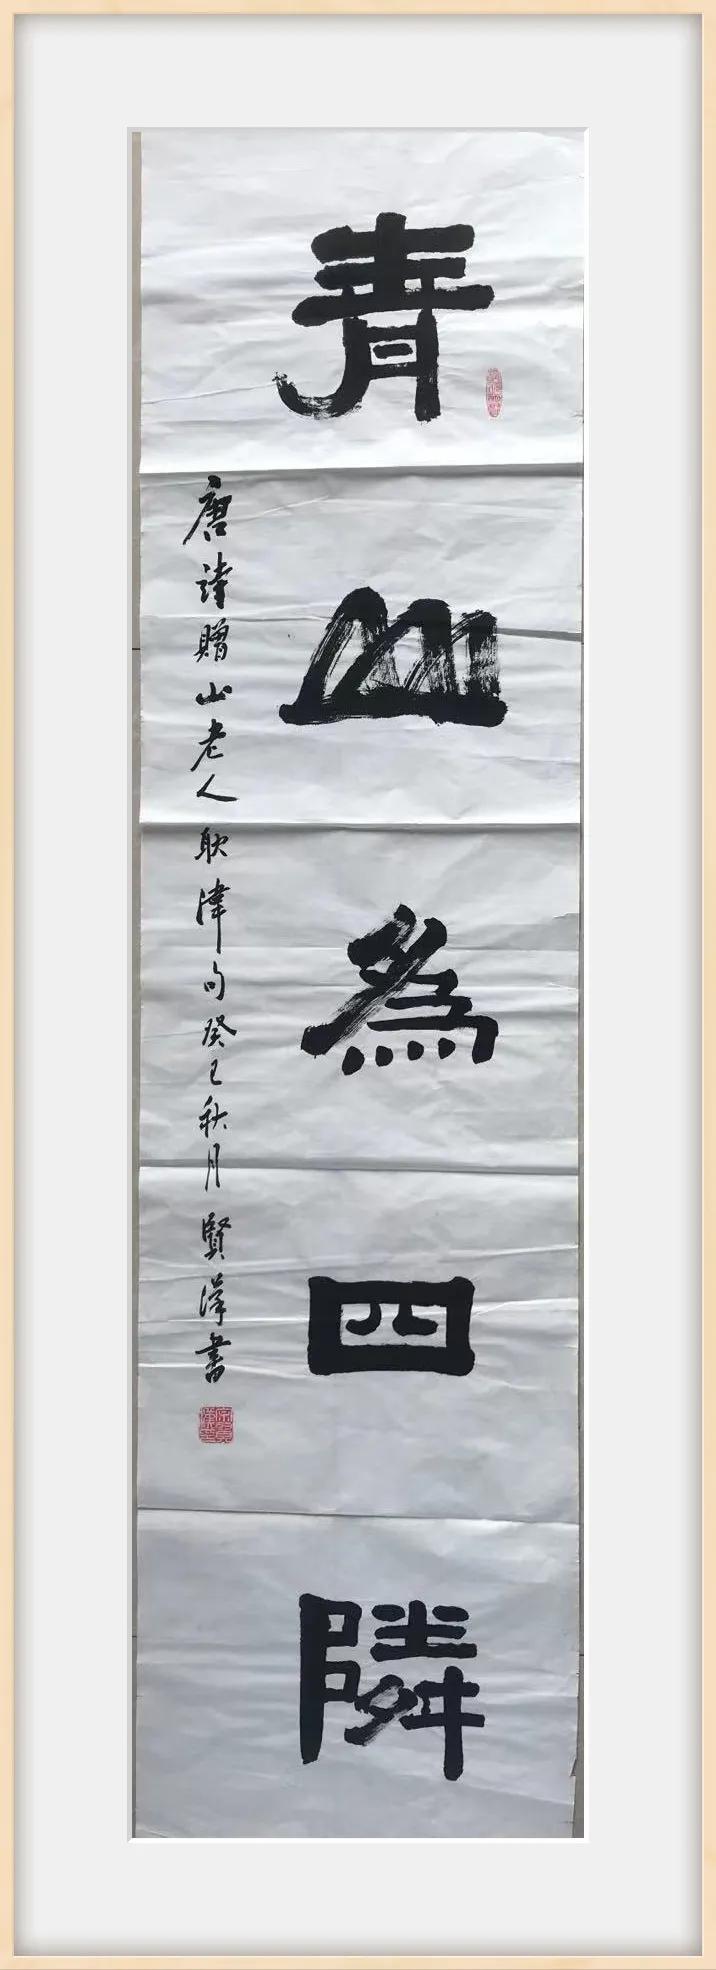 青山為四隣
唐詩贈山老人耿湋句癸巳秋月賢漢書